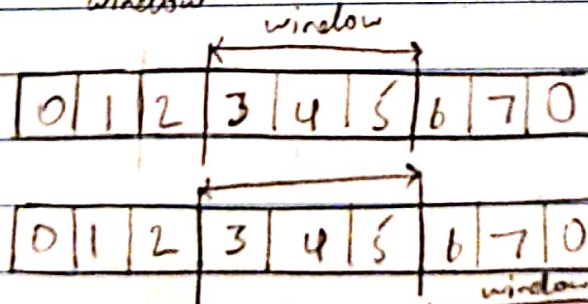 window
window
0 1 2 3 4 5 6 7 0
0 1 2 3 4 5 6 7 0
window